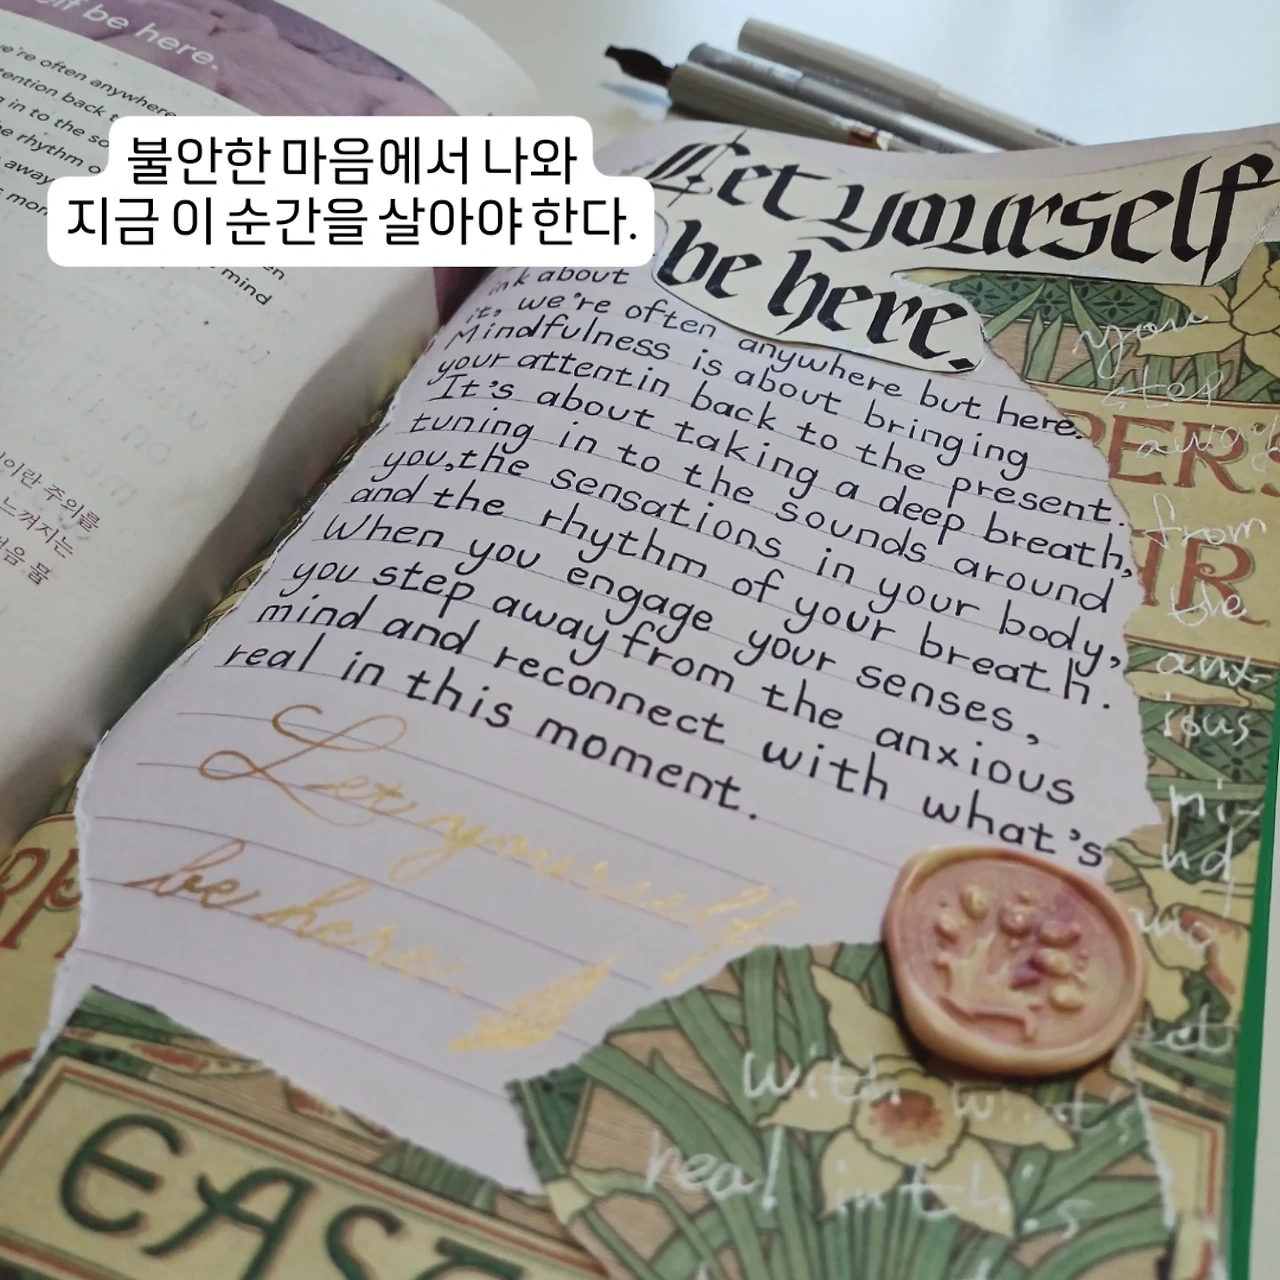 불안한 마음에서 나와
지금 이 순간을 살아야 한다.
self be here.
we're often anywhere
tention back
in to the so
rhythm o
away
mind
이란 주의를
느껴지는
Let yourself
be here.
ink about
it, we're often anywhere but here.
Mindfulness is about bringing
your attentin back to the present.
It's about taking a deep breath,
tuning in to the sounds around
you, the sensations in your body,
and the rhythm of your breath.
When you engage your senses,
you step away from the anxious
mind and reconnect with what's
real in this moment.
Let yourself
be here.
you
step
away
from
the
anx-
ious
mi-
nd
with what's
real in this
PERS
IR
EAST